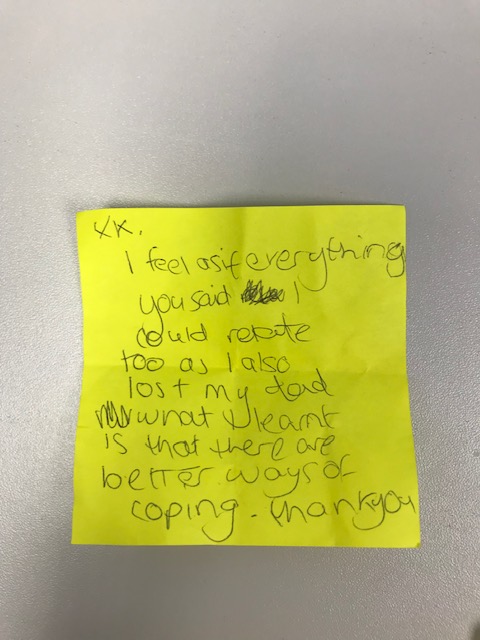 xx.
I feel as if everything
you said I
could relate
too as I also
lost my dad
what I learnt
is that there are
better ways of
coping. thankyou